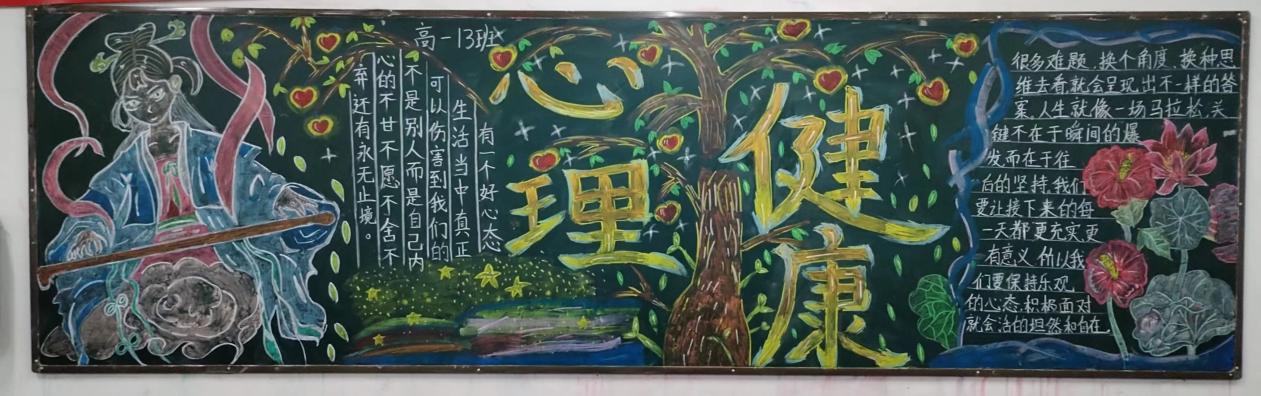 高一13班
心理
健康
有一个好心态
生活当中真正
可以伤害到我们的
不是别人而是自己内
心的不甘不愿不舍不
弃还有永无止境。
很多难题、换个角度、换种思
维去看,就会呈现出不一样的答
案,人生就像一场马拉松,关
键不在于瞬间的爆
发而在于往
后的坚持,我们
要让接下来的每
一天都更充实更
有意义所以我
们要保持乐观
的心态,积极面对
就会活的坦然和自在